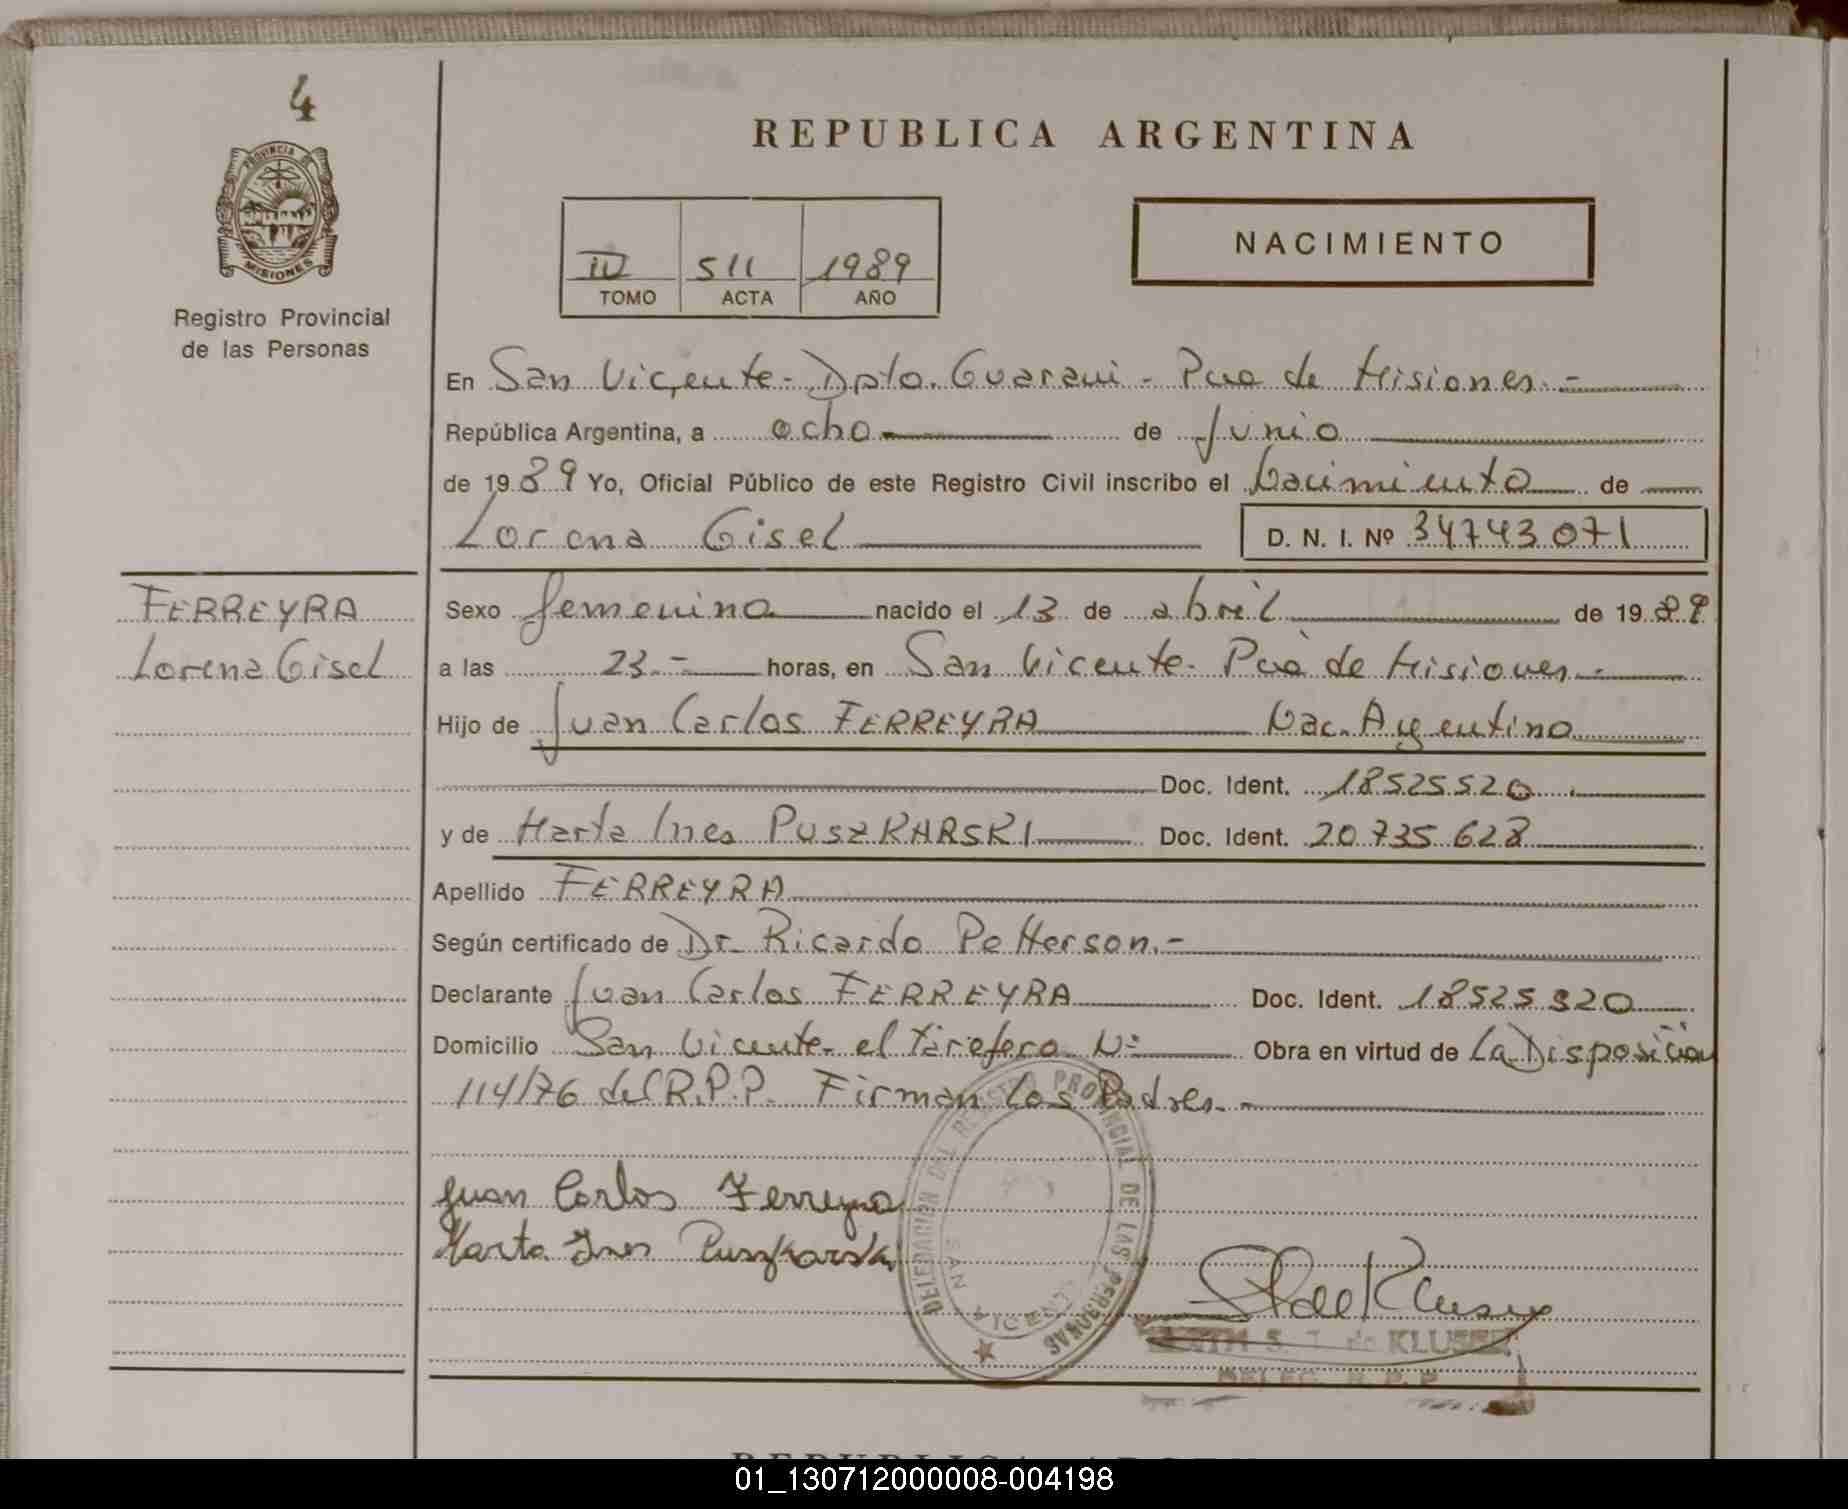 4
PROVINCIA DE
MISIONES
Registro Provincial
de las Personas
REPUBLICA ARGENTINA
IV 511 1989
TOMO ACTA AÑO
NACIMIENTO
En San Vicente - Dpto. Guaraní - Pcia de Misiones.-
República Argentina, a ocho de Junio
de 1989 Yo, Oficial Público de este Registro Civil inscribo el Nacimiento de
Lorena Gisel D. N. I. Nº 34743071
FERREYRA
Lorena Gisel
Sexo femenino nacido el 13 de abril de 1989
a las 23.- horas, en San Vicente - Pcia de Misiones.-
Hijo de Juan Carlos FERREYRA Nac. Argentino
Doc. Ident. 18525520
y de Marta Ines PUSZKARSKI Doc. Ident. 20735628
Apellido FERREYRA
Según certificado de Dr. Ricardo Petterson.-
Declarante Juan Carlos FERREYRA Doc. Ident. 18525520
Domicilio San Vicente - el tarefero Nº Obra en virtud de La Disposición
114/76 del R.P.P. Firman Los Padres.-
Juan Carlos Ferreyra
Marta Ines Puszkarski
DELEGACION DEL REGISTRO PROVINCIAL DE LAS PERSONAS
SAN VICENTE
S. T. de KLUSEN
DELEG. R. P. P.
REPUBLICA ARGENTINA
01_130712000008-004198